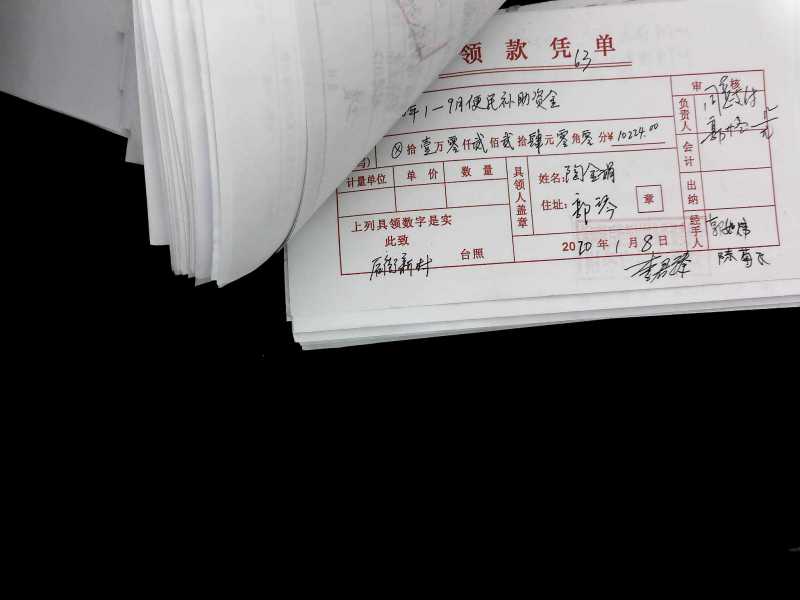 领款凭单
63
年1-9月便民补助资金
⊗拾壹万零仟贰佰贰拾肆元零角零分¥10224.00
计量单位 单价 数量
上列具领数字是实
此致
台照
后街新村
具领人盖章
姓名:陶金娟
住址:郭玲
章
2020年1月8日
审核
负责人
同意支付
会计
出纳
经手人